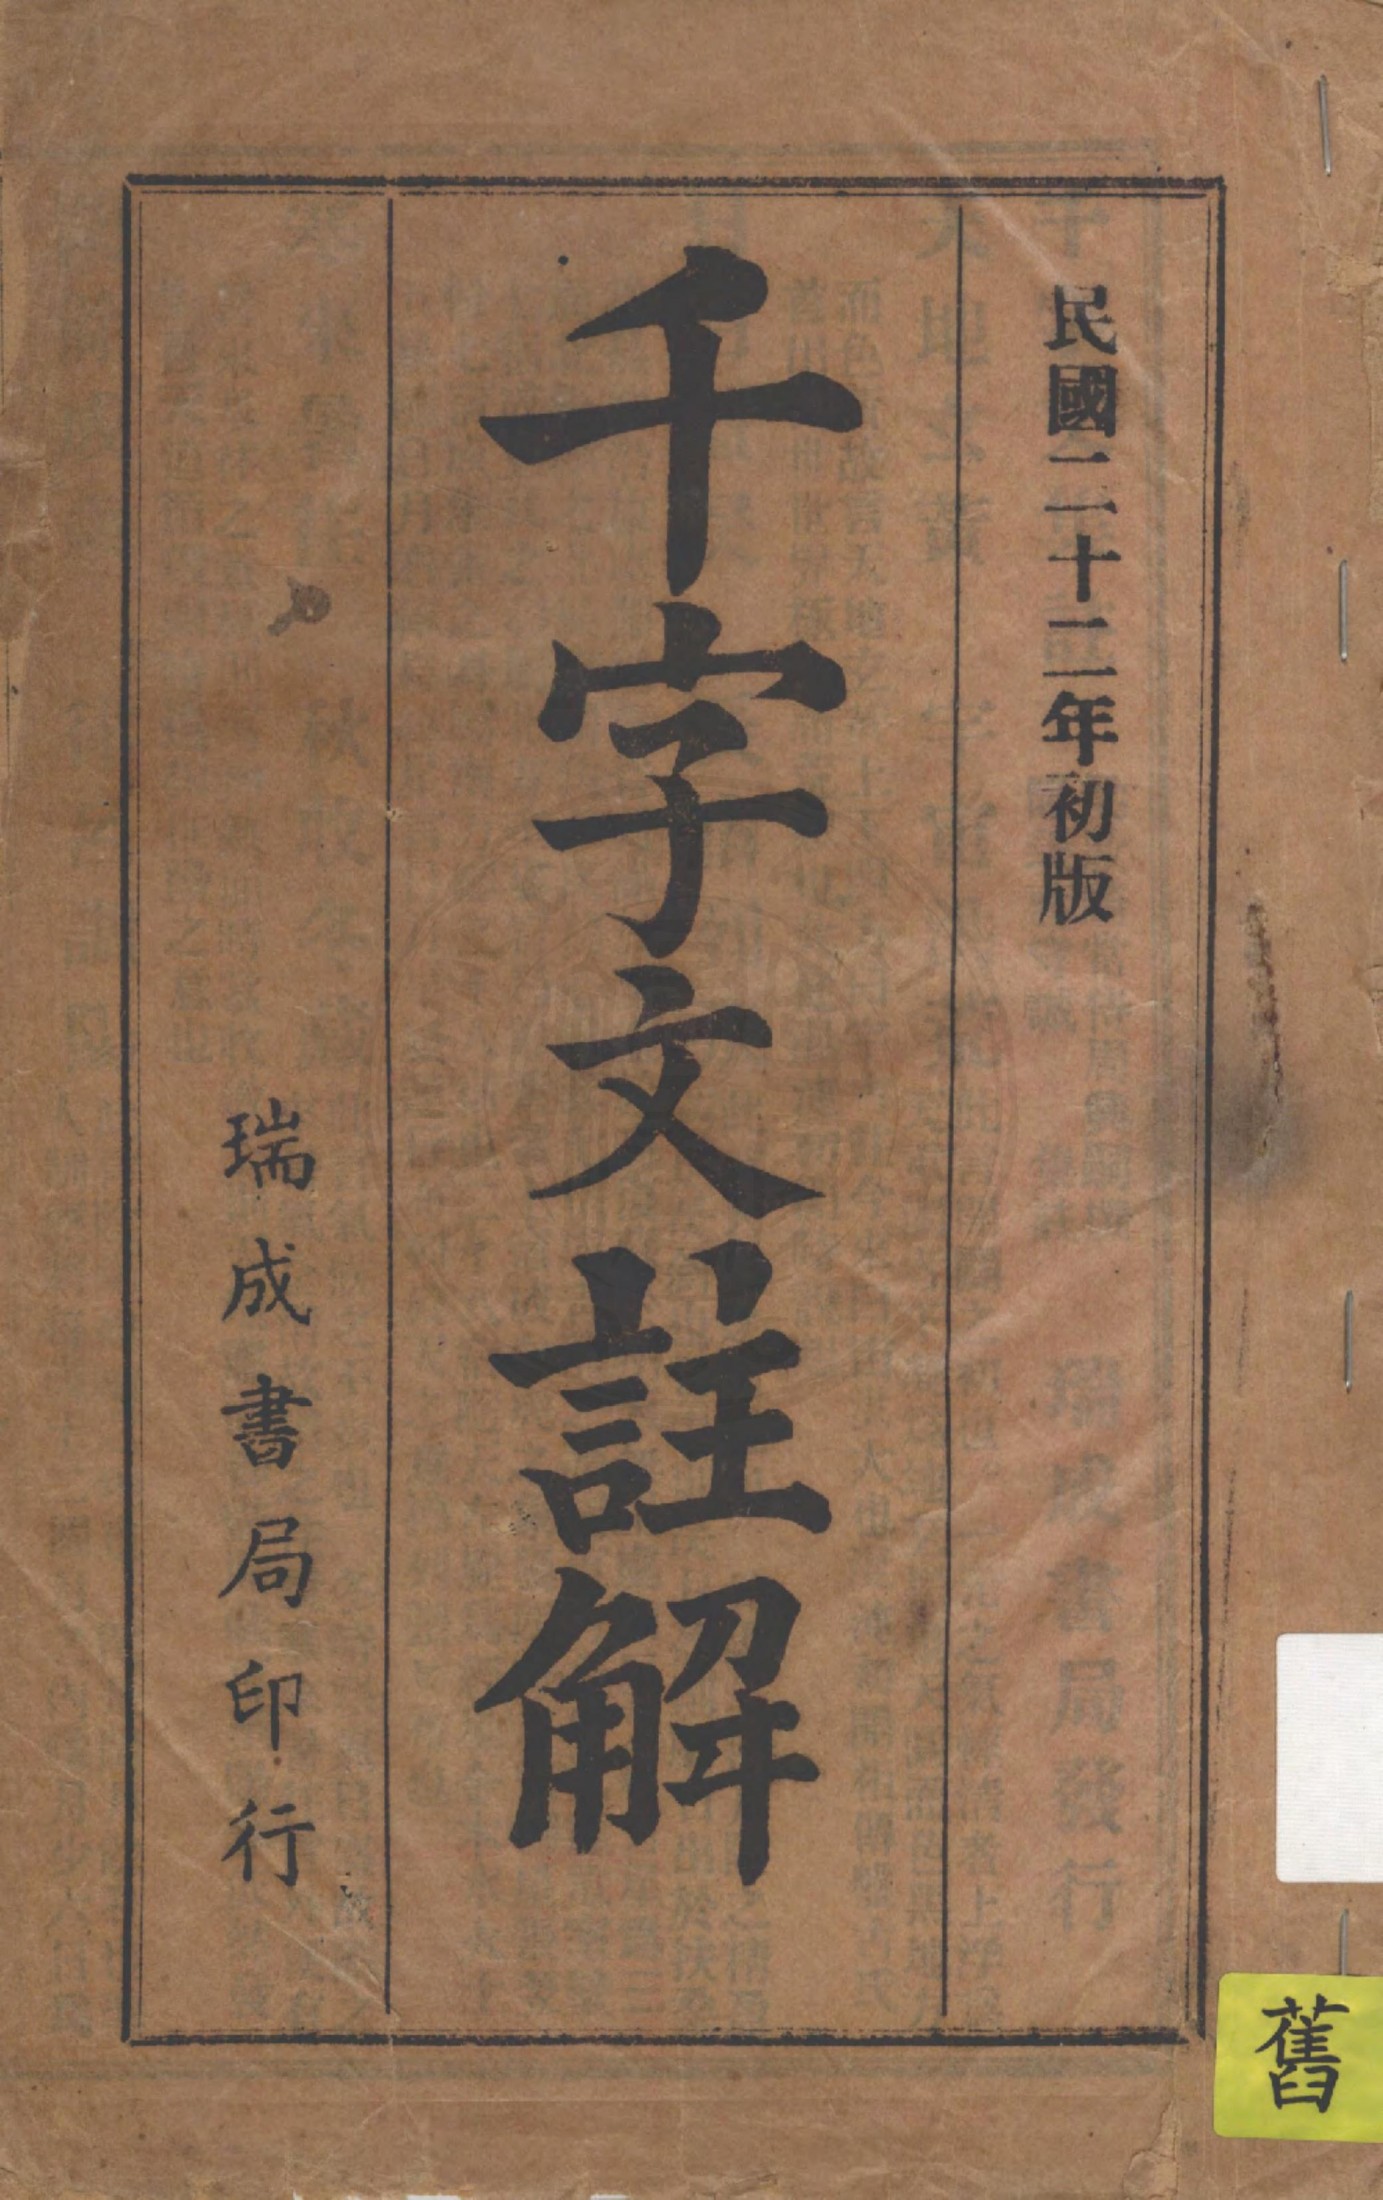 民國二十二年初版
千字文註解
瑞成書局印行
舊